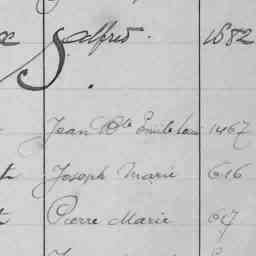 Alfred. 1682
S.
Jean Bte Emile 1467
Joseph Marie 616
Pierre Marie 617